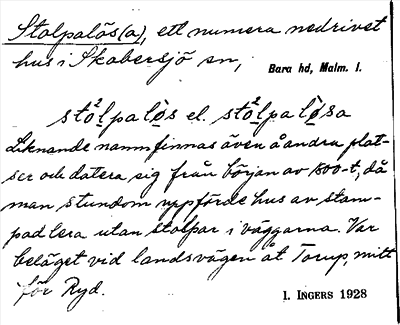 Stolpalös(a), ett numera nedrivet
hus i Skabersjö sn,
Bara hd, Malm. l.
sto²lpalòs el. sto²lpalòsa
Liknande namn finnas även å andra plat-
ser och datera sig från början av 1800-t, då
man stundom uppförde hus av stam-
pad lera utan stolpar i väggarna. Var
beläget vid landsvägen åt Torup, mitt
för Ryd.
I. INGERS 1928